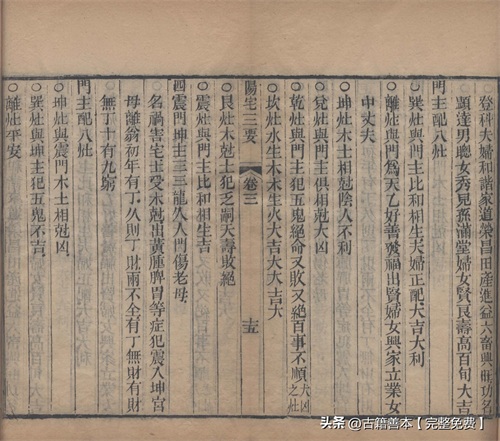 登科夫婦和諧家道榮昌田產進益六畜興旺功名
顯達男聰女秀兒孫滿堂婦女賢良壽高百旬大吉
門主配八灶
○巽灶與門主比和相生夫婦正配大吉大利
○離灶與門爲天乙好善發福出賢婦女興家立業女
中丈夫
○坤灶木土相尅陰人不利
○兌灶與門主俱相尅凶
○乾灶與門主犯五鬼絕命又敗又絕百事不順大凶之灶
○坎灶水生木木生火大吉大大吉大
陽宅三要
卷三
十五
○艮灶木尅土犯乏嗣夭壽敗絕
○震灶與門主比和相生吉
四震門坤主三三龍入人門傷老母
名禍害宅主受木尅出黃腫脾胃等症犯震入坤宮
母離翁初年有丁久則丁財兩不全有丁無財有財
無丁十有九窮
門主配八灶
○坤灶與震門木土相尅凶
○巽灶與主犯五鬼不吉
○離灶平安
头条 @古籍善本【完整免费】